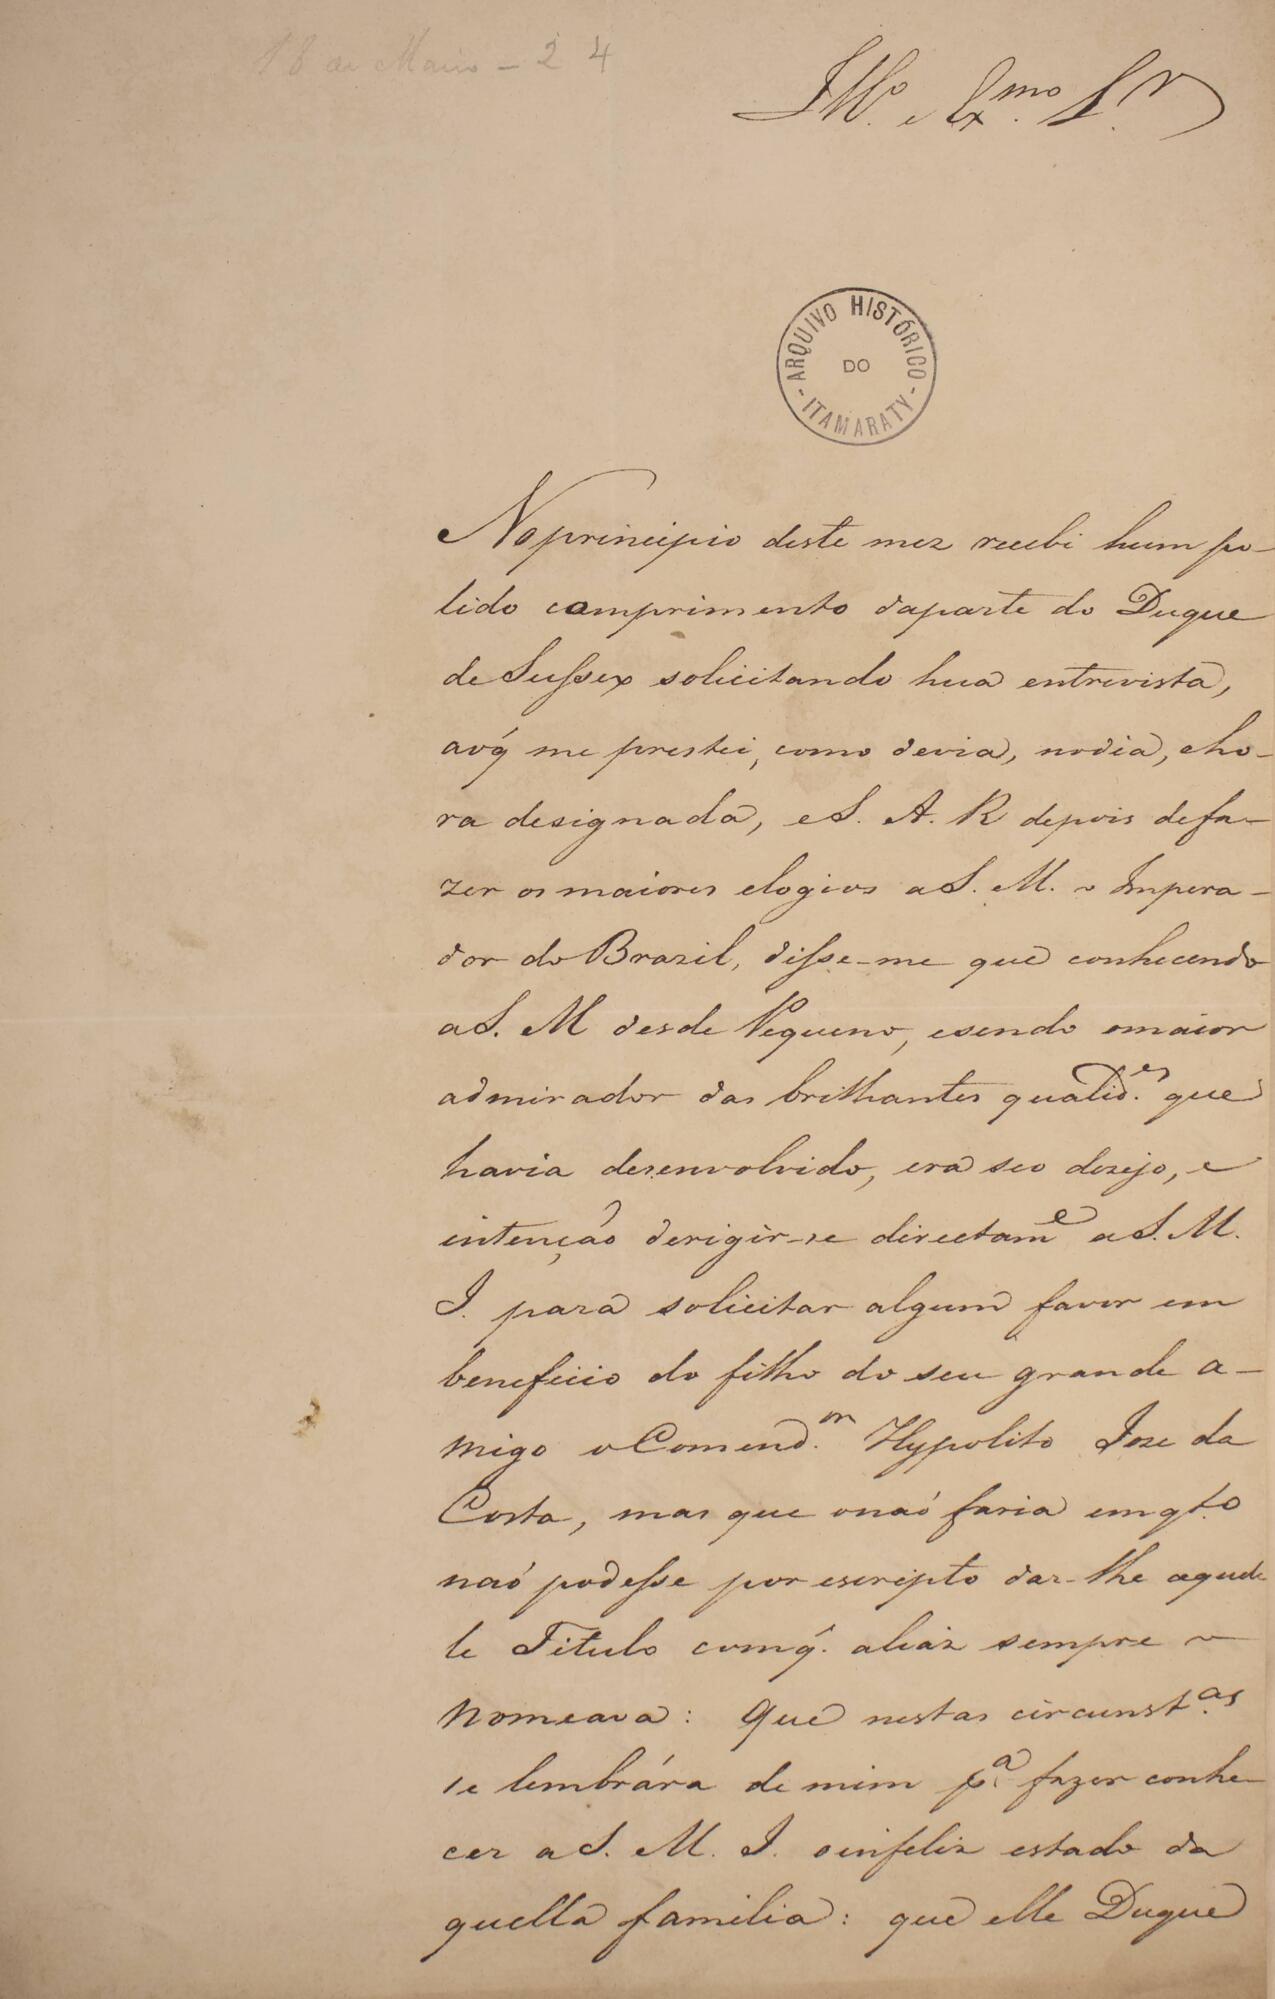 18 de Maio - 24
Ill.º e Ex.mo S.r
ARQUIVO HISTÓRICO
DO
- ITAMARATY -
No principio deste mez recebi hum po-
lido comprimento daparte do Duque
de Sussex solicitando hua entrevista,
aoq̃ me prestei, como devia, nodia, eho-
ra designada, e S. A. R depois defa-
zer os maiores elogios a S. M. o Impera-
dor do Brazil, disse-me que conhecendo
a S. M desde Pequeno, esendo omaior
admirador das brilhantes qualid.es que
havia desenvolvido, era seo desejo, e
intenção derigir-se directam.e a S. M.
I. para solicitar algum favor em
beneficio do filho do seu grande a-
migo o Comend.or Hypolito Joze da
Costa, mas que onaõ faria emqt.o
naõ podesse por escripto dar-lhe aquel-
le Titulo comq̃. aliaz sempre o
nomeava: Que nestas circunst.as
se lembrára de mim p.a fazer conhe-
cer a S. M. I. oinfeliz estado da
quella familia: que elle Duque